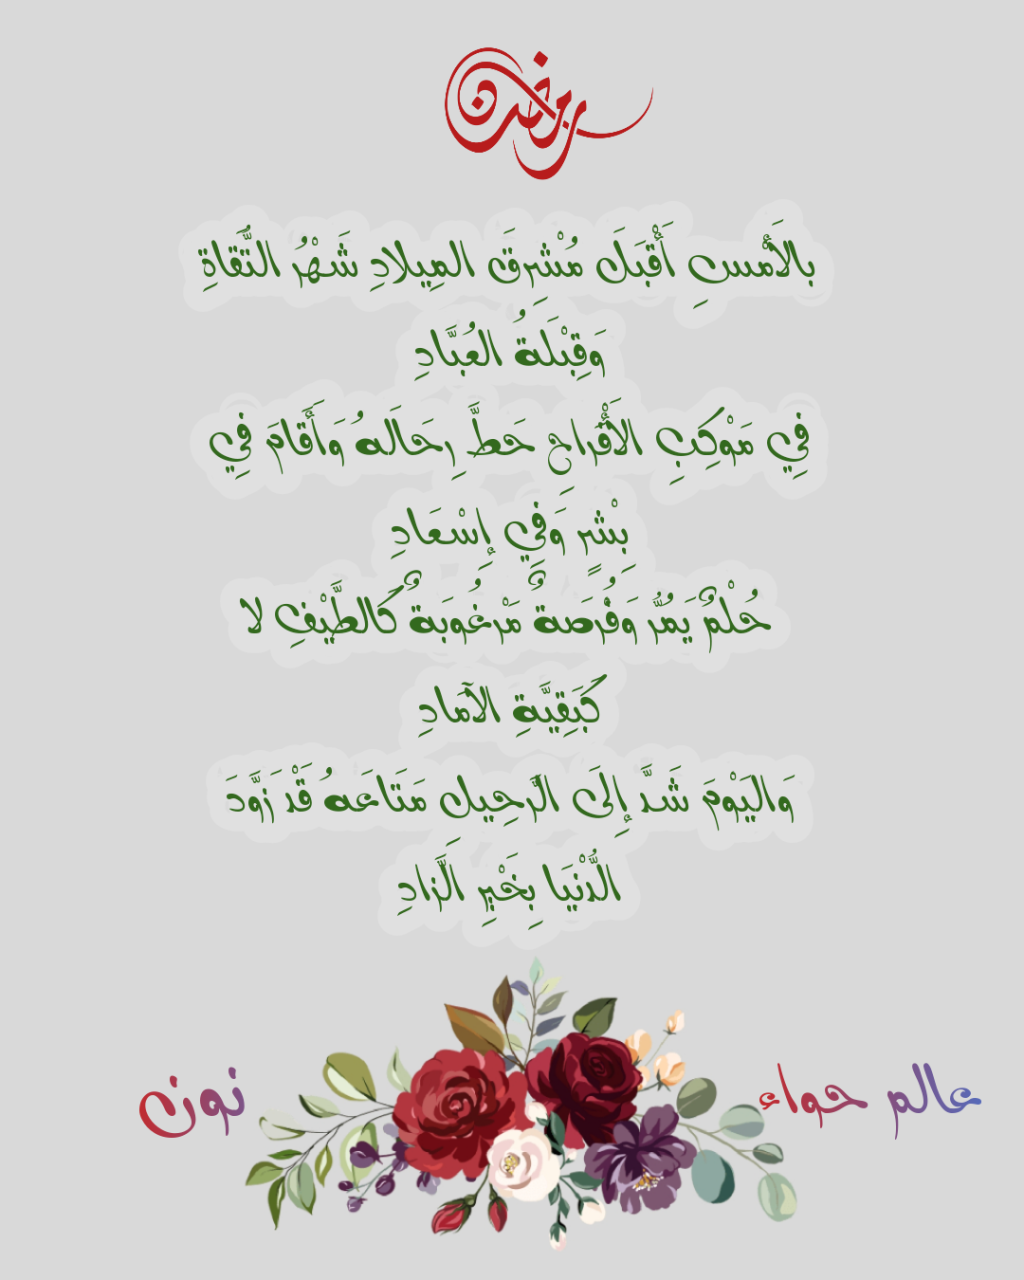 رمضان
بالَأمسِ أَقْبَلَ مُشْرِقَ المِيلادِ شَهْرُ التُّقاةِ
وَقِبْلَةُ العُبَّادِ
فِي مَوْكِبِ الأَفْراحِ حَطَّ رِحَالَهُ وَأَقامَ فِي
بِشْرٍ وَفِي إِسْعَادِ
حُلْمٌ يَمُرُّ وَفُرَصَةٌ مَرْغُوبَةٌ كَالطَّيْفِ لا
كَبَقِيَّةِ الآمَادِ
وَاليَوْمَ شَدَّ إِلَى الرَّحِيلِ مَتَاعَهُ قَدْ زَوَّدَ
الدُّنْيَا بِخَيْرِ الَزَّادِ
عالم حواء
نون